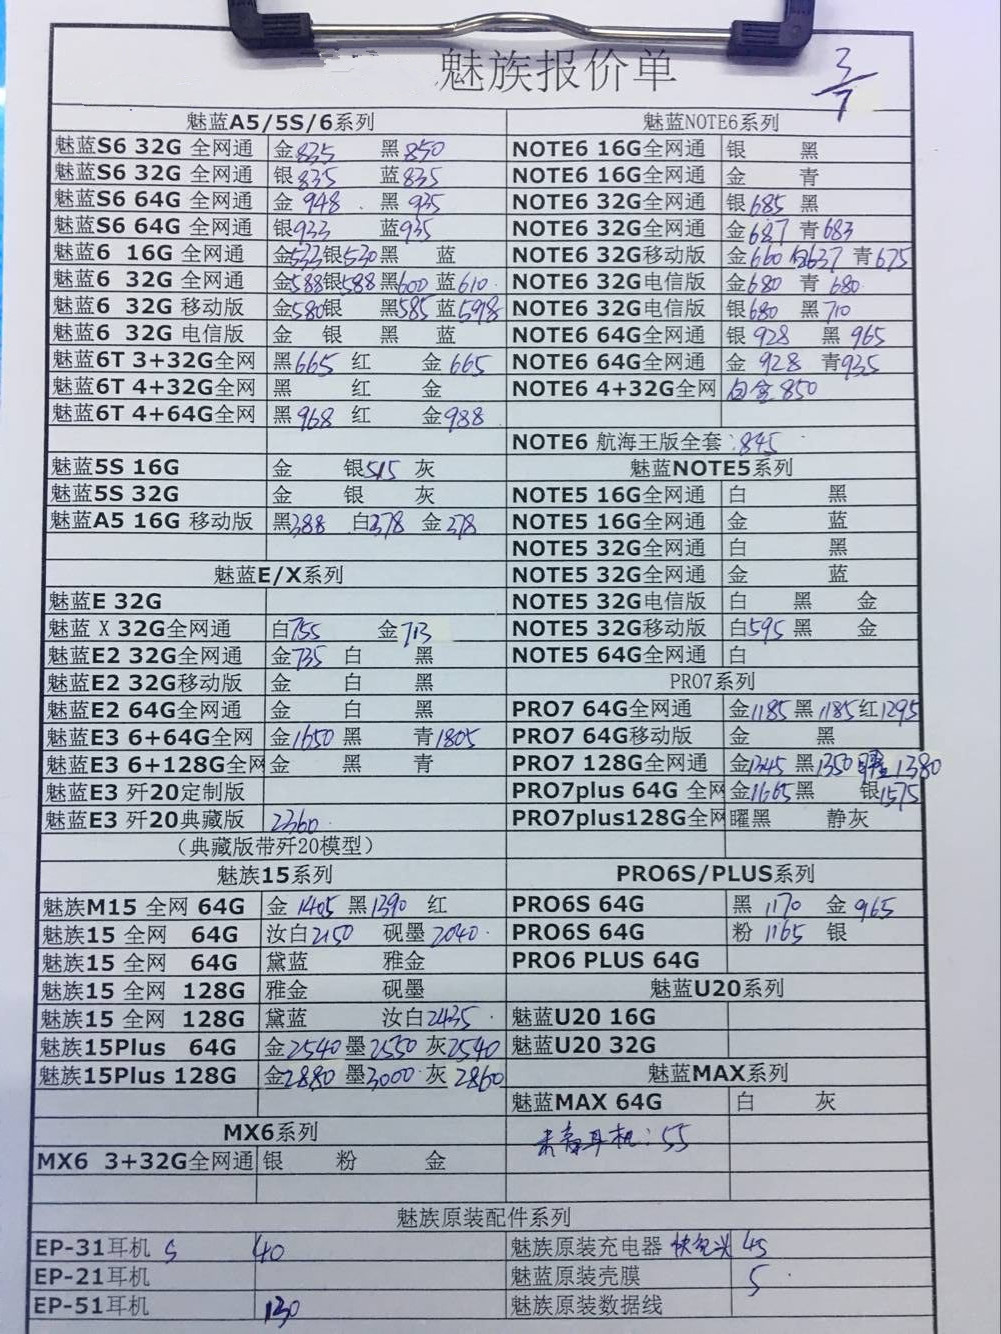 魅族报价单
3/7
魅蓝A5/5S/6系列
魅蓝S6 32G 全网通 金835 黑850
魅蓝S6 32G 全网通 银835 蓝835
魅蓝S6 64G 全网通 金 948 黑 935
魅蓝S6 64G 全网通 银933 蓝935
魅蓝6 16G 全网通 金533银530黑 蓝
魅蓝6 32G 全网通 金588银588黑600 蓝610
魅蓝6 32G 移动版 金580银 黑585蓝598
魅蓝6 32G 电信版 金 银 黑 蓝
魅蓝6T 3+32G全网 黑665 红 金 665
魅蓝6T 4+32G全网 黑 红 金
魅蓝6T 4+64G全网 黑968 红 金988
魅蓝5S 16G 金 银515 灰
魅蓝5S 32G 金 银 灰
魅蓝A5 16G 移动版 黑388 白378 金378
魅蓝E/X系列
魅蓝E 32G
魅蓝 X 32G全网通 白755 金713
魅蓝E2 32G全网通 金735 白 黑
魅蓝E2 32G移动版 金 白 黑
魅蓝E2 64G全网通 金 白 黑
魅蓝E3 6+64G全网 金1650 黑 青1805
魅蓝E3 6+128G全网 金 黑 青
魅蓝E3 歼20定制版
魅蓝E3 歼20典藏版 2360
（典藏版带歼20模型）
魅族15系列
魅族M15 全网 64G 金 1405 黑1390 红
魅族15 全网 64G 汝白2150 砚墨2040
魅族15 全网 64G 黛蓝 雅金
魅族15 全网 128G 雅金 砚墨
魅族15 全网 128G 黛蓝 汝白2435
魅族15Plus 64G 金2540 墨2550 灰2540
魅族15Plus 128G 金2880 墨3000 灰 2860
MX6系列
MX6 3+32G全网通 银 粉 金
魅蓝NOTE6系列
NOTE6 16G全网通 银 黑
NOTE6 16G全网通 金 青
NOTE6 32G全网通 银685 黑
NOTE6 32G全网通 金687 青683
NOTE6 32G移动版 金660 637 青675
NOTE6 32G电信版 金680 青 680
NOTE6 32G电信版 银680 黑710
NOTE6 64G全网通 银 928 黑 965
NOTE6 64G全网通 金 928 青935
NOTE6 4+32G全网 850
NOTE6 航海王版全套：845
魅蓝NOTE5系列
NOTE5 16G全网通 白 黑
NOTE5 16G全网通 金 蓝
NOTE5 32G全网通 白 黑
NOTE5 32G全网通 金 蓝
NOTE5 32G电信版 白 黑 金
NOTE5 32G移动版 白595 黑 金
NOTE5 64G全网通 白
PRO7系列
PRO7 64G全网通 金1185 黑1185红1295
PRO7 64G移动版 金 黑
PRO7 128G全网通 金1345 黑1350 1380
PRO7plus 64G 全网 金1665黑 银1575
PRO7plus128G全网 曜黑 静灰
PRO6S/PLUS系列
PRO6S 64G 黑 1170 金 965
PRO6S 64G 粉 1165 银
PRO6 PLUS 64G
魅蓝U20系列
魅蓝U20 16G
魅蓝U20 32G
魅蓝MAX系列
魅蓝MAX 64G 白 灰
耳机：55
魅族原装配件系列
EP-31耳机 S 40 魅族原装充电器 45
EP-21耳机 魅蓝原装壳膜 5
EP-51耳机 130 魅族原装数据线